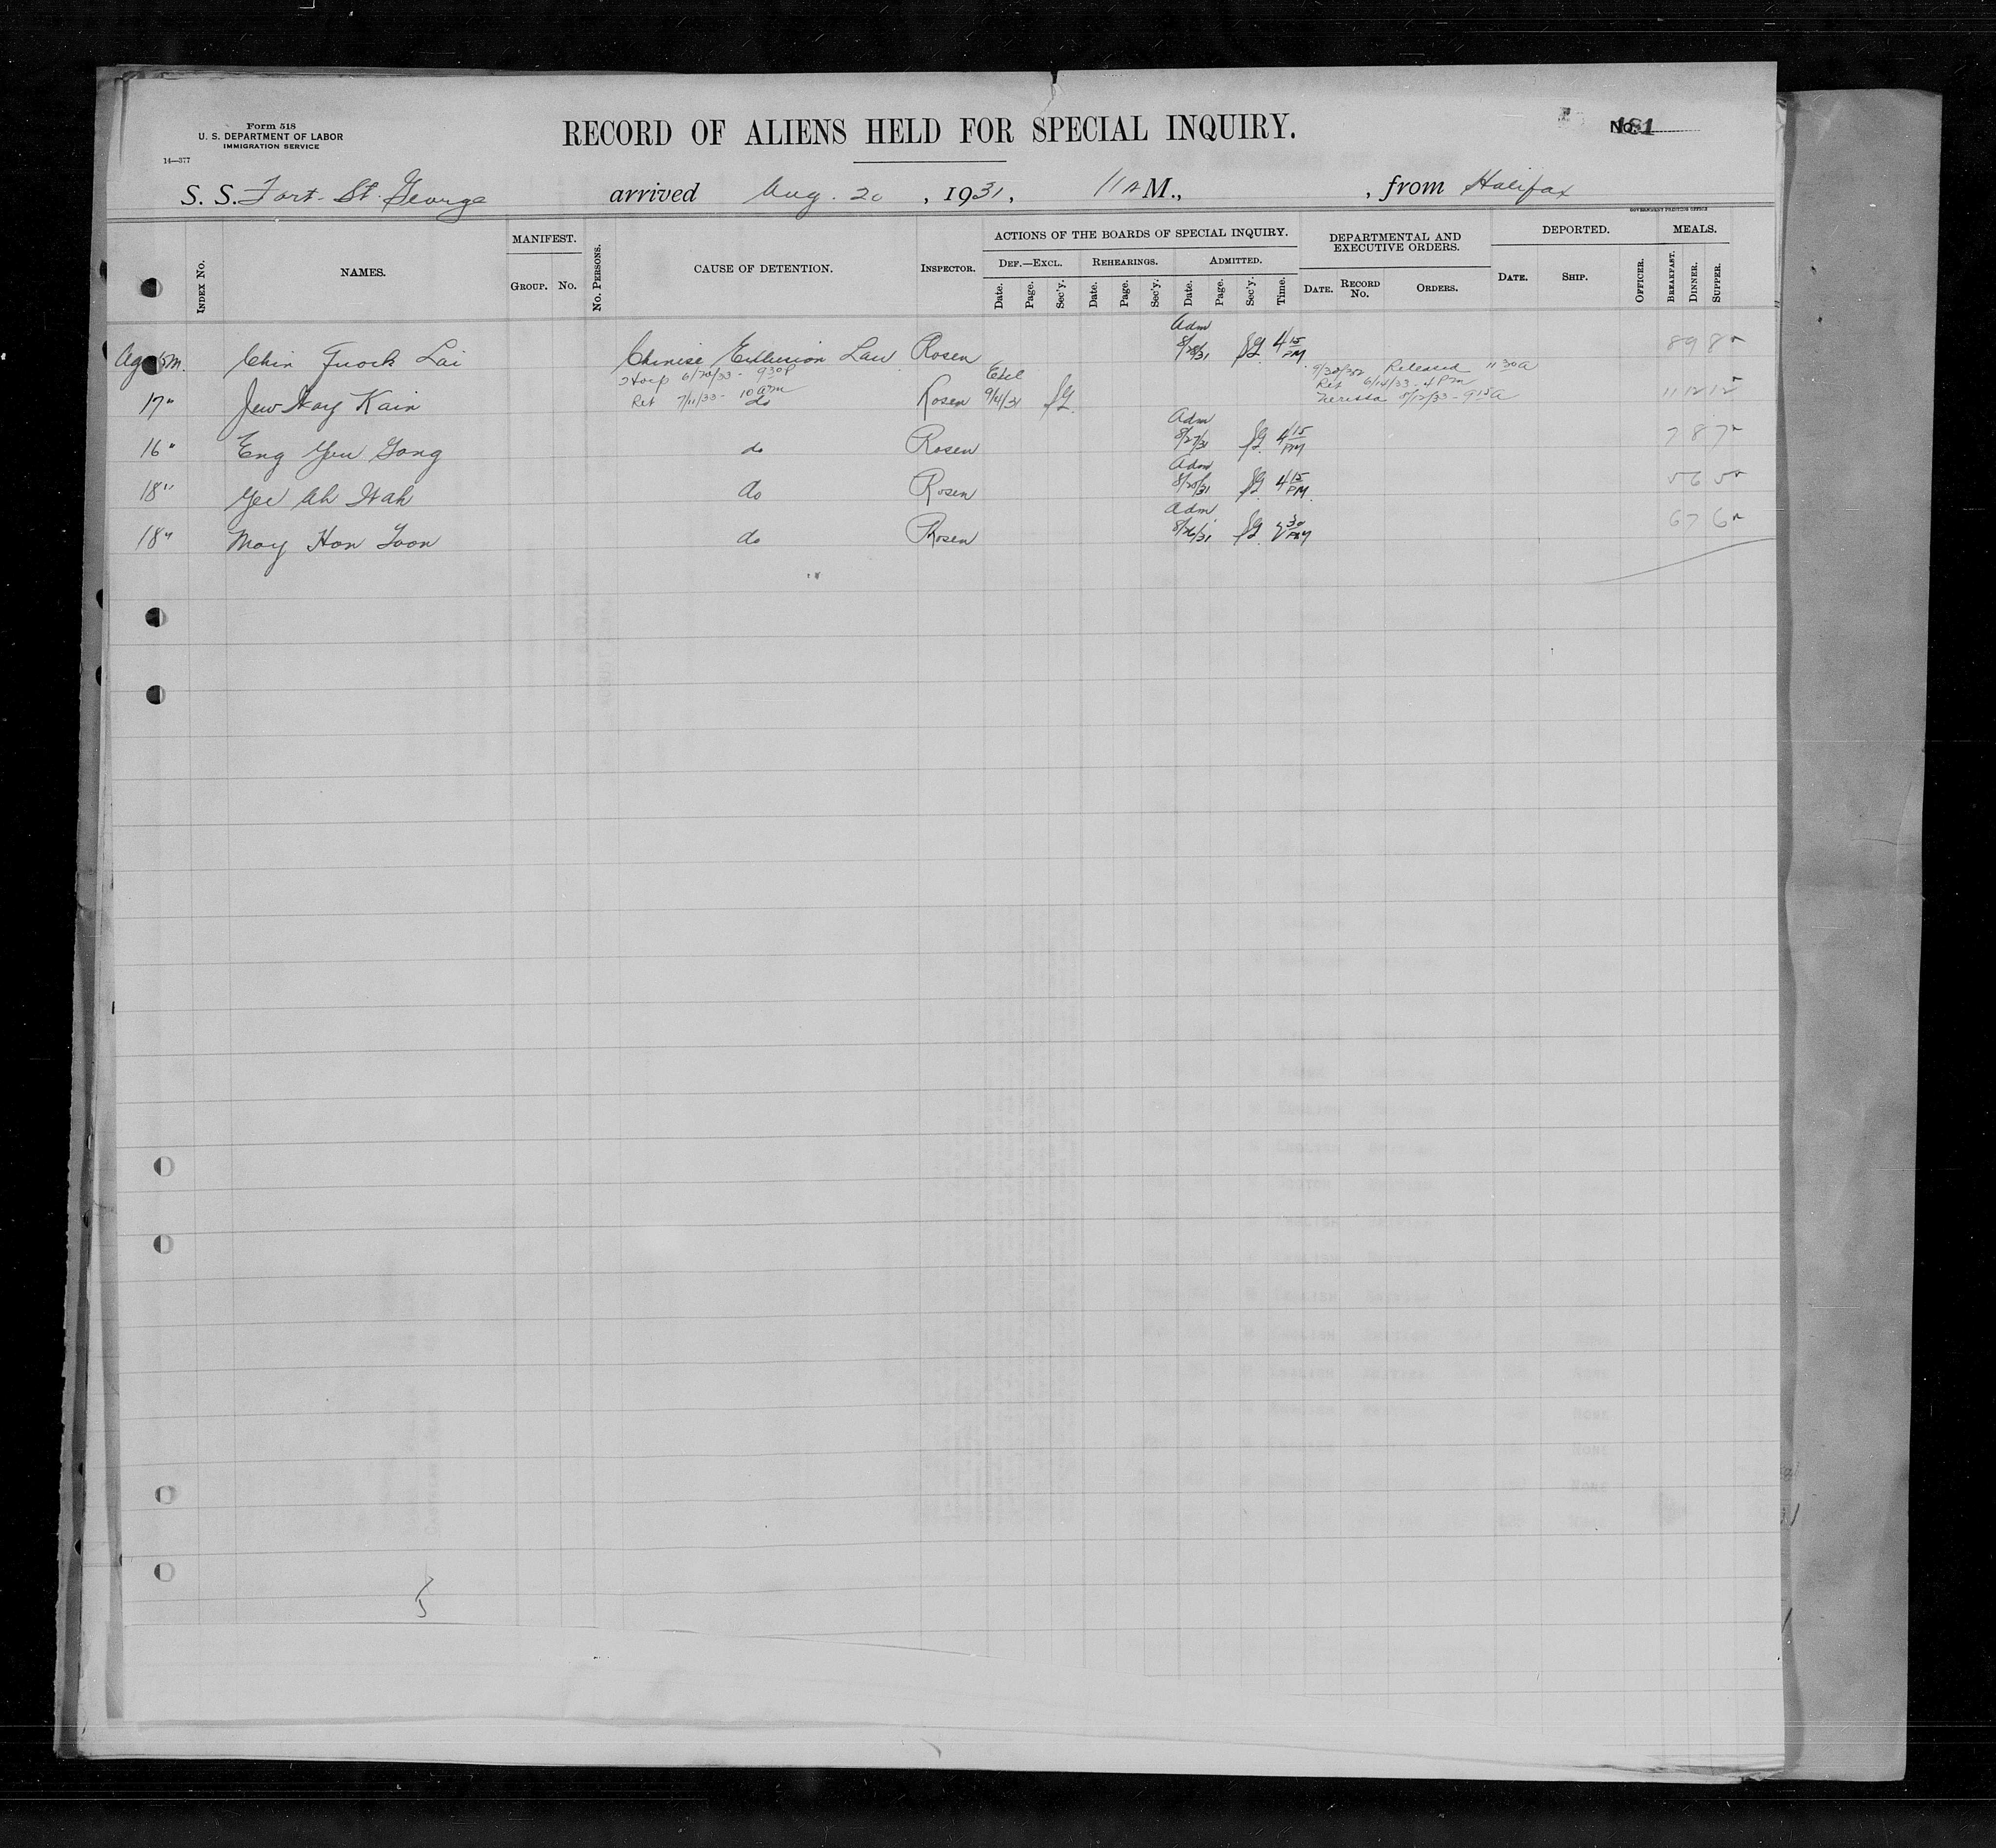 Form 518
U. S. DEPARTMENT OF LABOR
IMMIGRATION SERVICE
14—377
RECORD OF ALIENS HELD FOR SPECIAL INQUIRY.
No. 181
S. S. Fort St. George arrived Aug. 20, 1931, 11 A M., , from Halifax
GOVERNMENT PRINTING OFFICE
INDEX No. NAMES. MANIFEST. GROUP. No. No. PERSONS. CAUSE OF DETENTION. INSPECTOR. ACTIONS OF THE BOARDS OF SPECIAL INQUIRY. DEF.—EXCL. Date. Page. Sec'y. REHEARINGS. Date. Page. Sec'y. ADMITTED. Date. Page. Sec'y. Time. DEPARTMENTAL AND EXECUTIVE ORDERS. DATE. RECORD No. ORDERS. DEPORTED. DATE. SHIP. OFFICER. MEALS. BREAKFAST. DINNER. SUPPER.
Chin Quock Lai Chinese Exclusion Law Rosen Adm 8/28/31 4 15 PM 8 9 8
6/20/33 - 930P Released 11 30 A
Ret 7/11/33 - 10 am Ret 6/14/33 - 4 Pm
17" Jew Hay Kain do Rosen Excl 9/4/31 Nerissa 8/12/33 - 9 15 A 11 12 12
16" Eng You Gong do Rosen Adm 8/27/31 4 15 PM 7 8 7
18" Yee Ah Wah do Rosen Adm 8/25/31 4 15 PM 5 6 5
18" Moy Hon Toon do Rosen Adm 8/26/31 30 PM 6 7 6
5